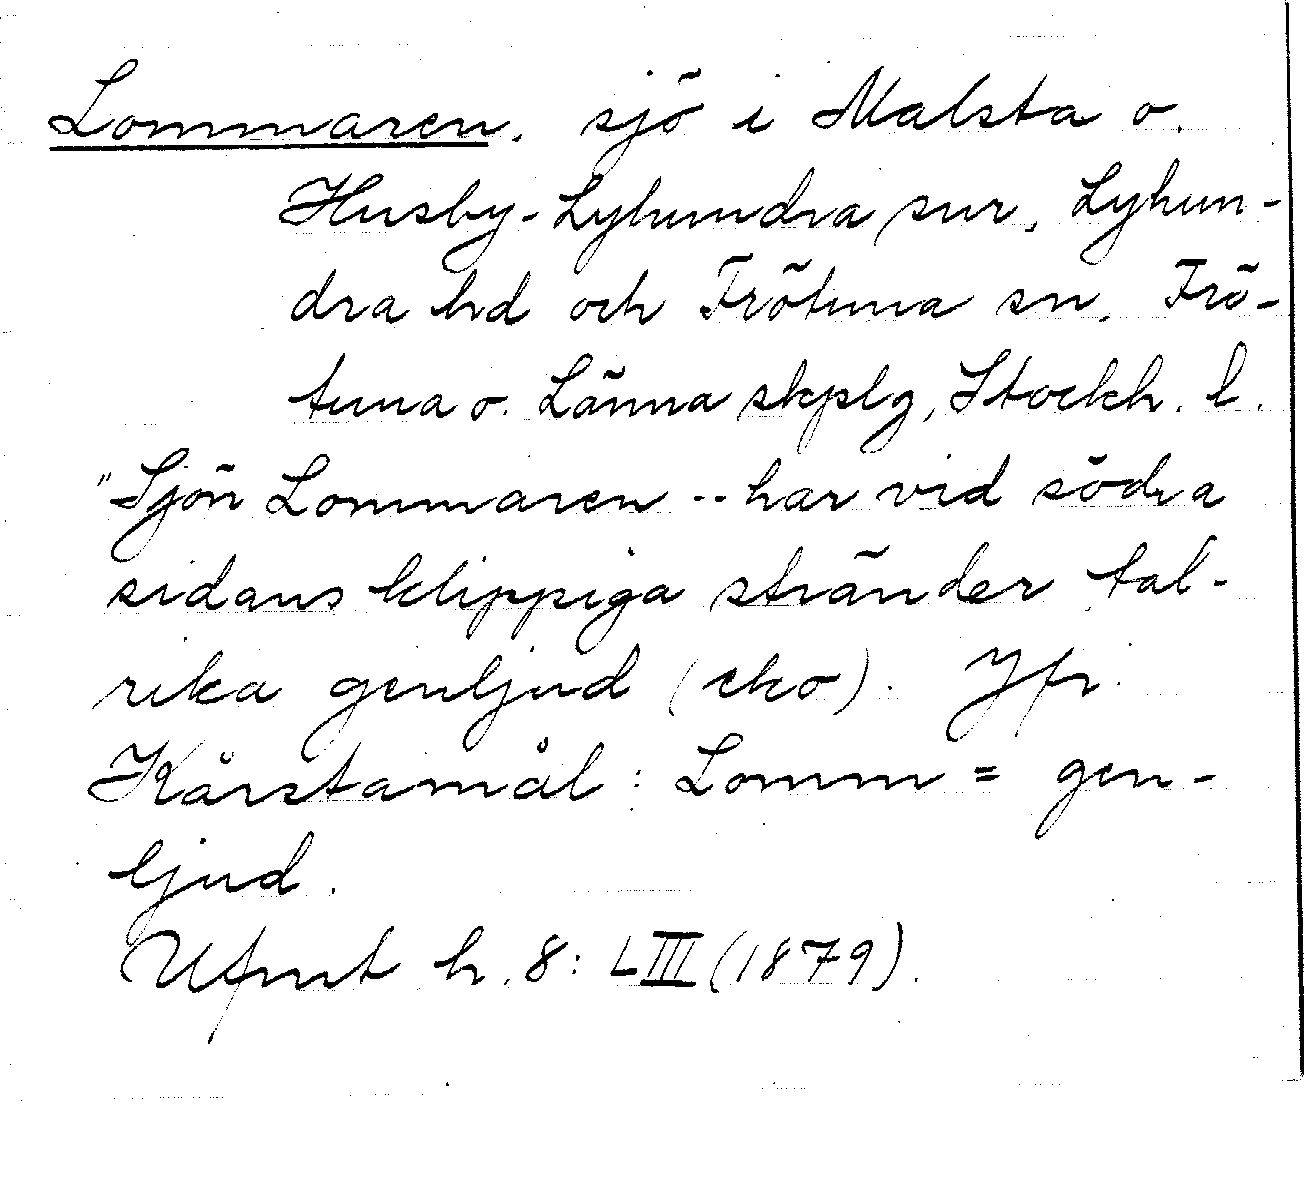 Lommaren. sjö i Malsta o.
Husby-Lyhundra snr, Lyhun-
dra hd och Frötuna sn. Frö-
tuna o. Länna skplg, Stockh. l.
"Sjön Lommaren -- har vid södra
sidans klippiga stränder tal-
rika genljud (eko). Jfr.
Kårstamål: Lomm = gen-
ljud.
Ufmt h. 8: LIII (1879).